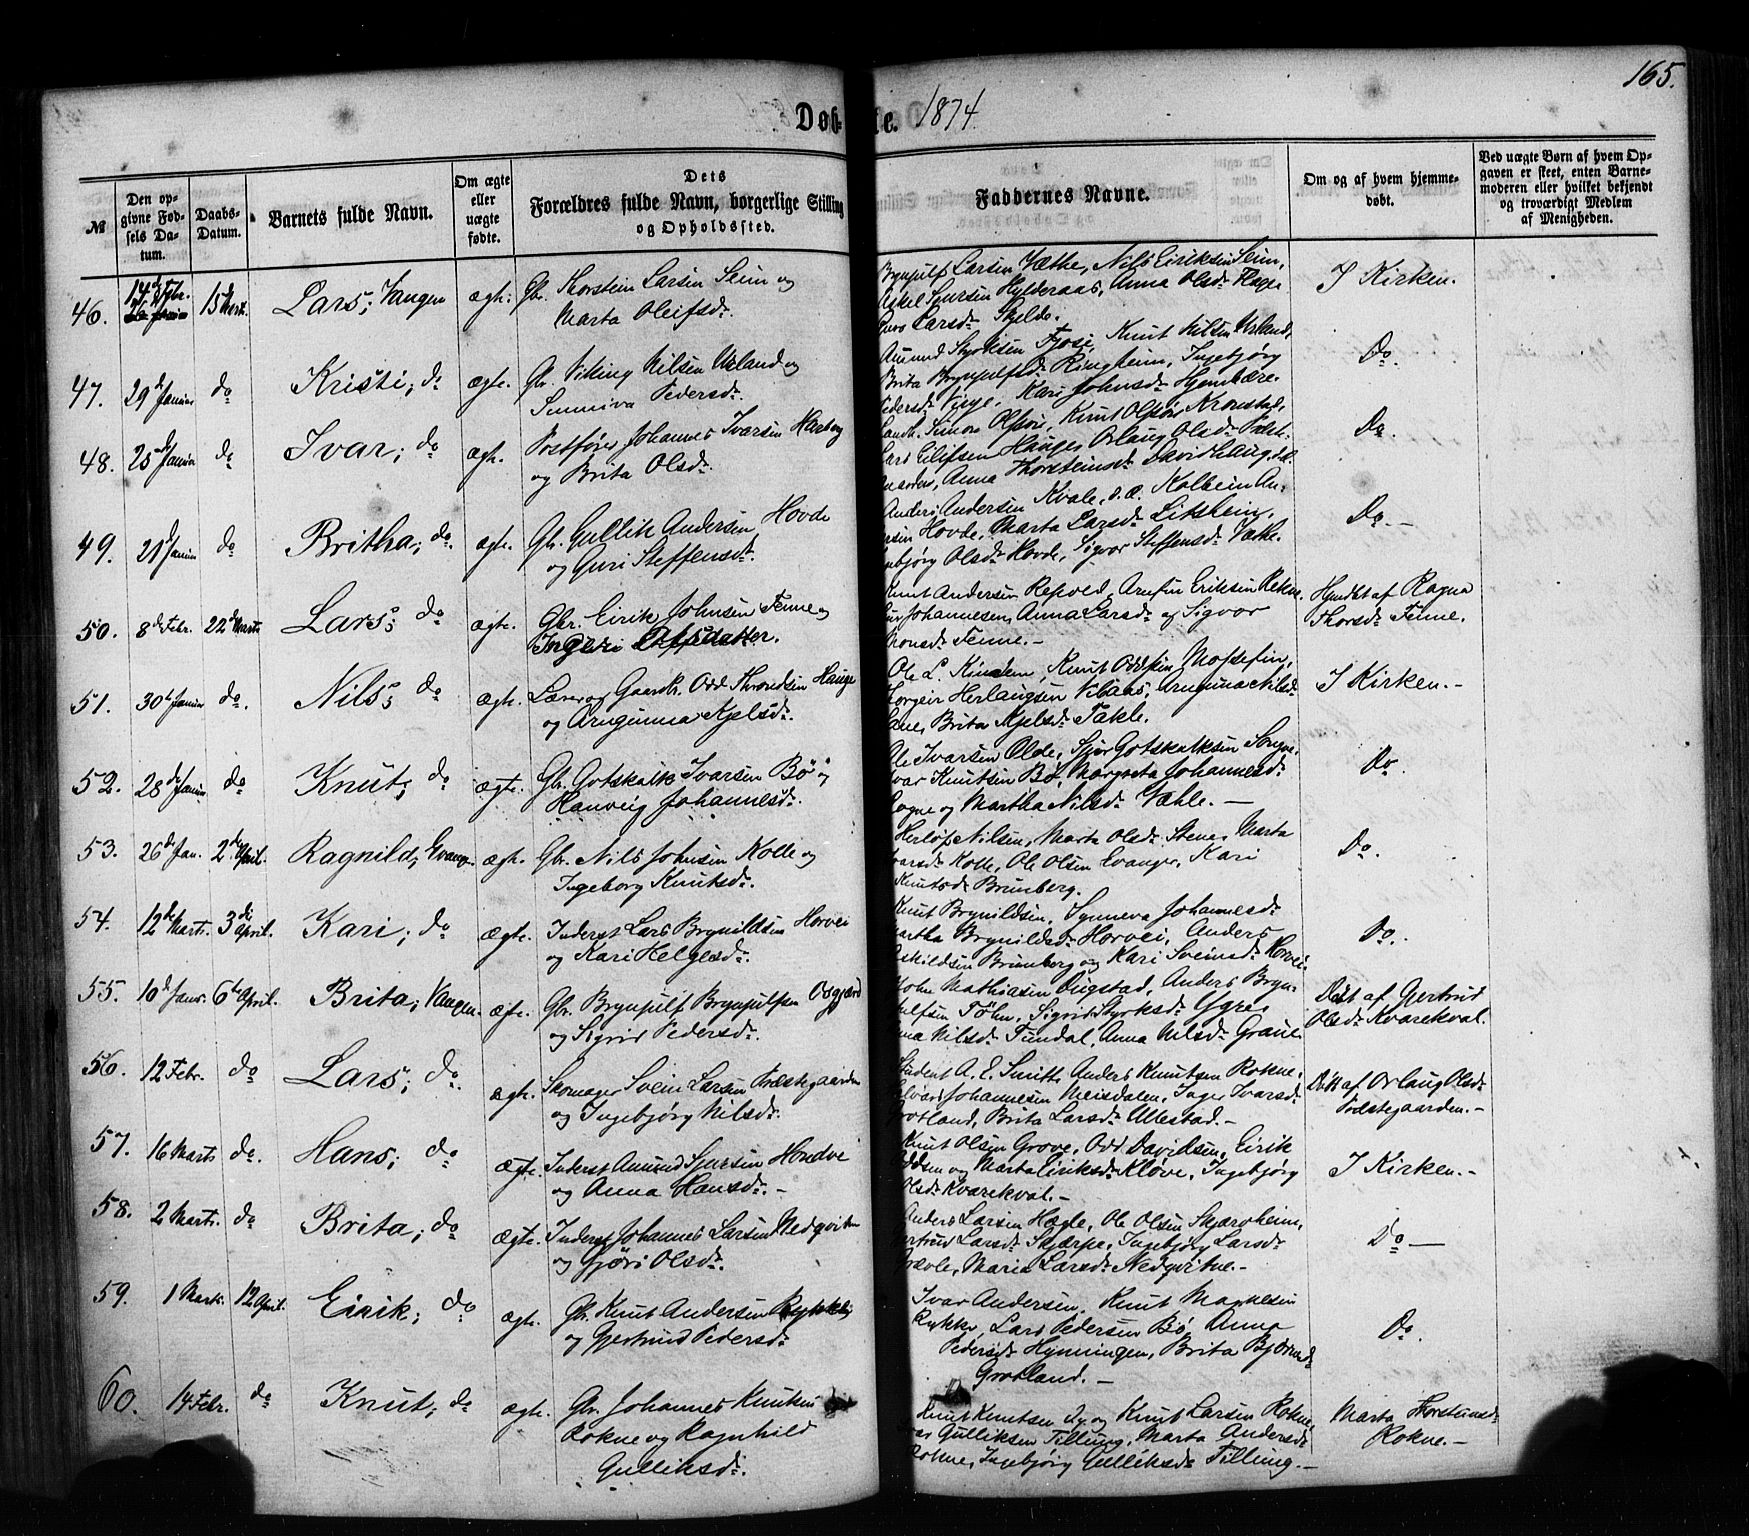 165.
Døbte. 1874.
№
Den opgivne Fødsels Datum.
Daabs-Datum.
Barnets fulde Navn.
Om ægte eller uægte fødte.
Dets Forældres fulde Navn, borgerlige Stilling og Opholdssted.
Faddernes Navne.
Om og af hvem hjemmedøbt.
Ved uægte Børn af hvem Opgaven er skeet, enten Barnemoderen eller hvilket bekjendt og troværdigt Medlem af Menigheden.
46. 14 Febr. 15 Marts. Lars; Vangen ægte: Gbr. Thorstein Larsen Seim og
Marta Oleifsd.
Brynjulf Larsen Væthe, Nils Eiriksen Seim,
Askel Sjursen Hylderaas, Anna Olsd.
Larsd. Skjelde.
I Kirken.
47. 29 Januar do Kristi; do ægte. Gbr. Viking Nilsen Urland og
Sunniva Pedersd.
Amund Styrksen Fjose, Knut Nilsen Urland,
Brita Brynjulfsd. Ringheim, Ingebjørg
Pedersd. Kari Johnsd.
Do.
48. 25 Januar do Ivar; do ægte. Postfører Johannes Ivarsen
og Brita Olsd.
Simon Olsen, Knut Olsen Kronstad,
Lars Eilifsen Hauge, Orlaug Olsd.
Anna Thorsteinsd. Davidhaug
Do.
49. 21 Januar do Britha; do. ægte. Gbr. Gullik Andersen Hovde
og Guri Steffensd.
Anders Andersen Kvale, Kolbein An-
Hovde, Marta Larsd. Litsheim,
Ingebjørg Olsd. Hovde, Sigvor Steffensd. Væthe.
Do. -
50. 8de Febr. 22 Marts Lars; do ægte. Gbr. Eirik Johnsen Tenne og
Ingeri Olfsdatter.
Knut Andersen Repved, Arnfin Eriksen Rekve,
Johannesen, Anna Larsd. og Sigvor
Monsd. Tenne. -
Hjmdt af Ragna
Thorsd. Tenne.
51. 30 Januar do. Nils; do ægte. Lærer og Gaardbr. Odd Throndsen Hauge
og Arngunna Kjelsd.
Ole L. Kinden, Knut Oddsen Mossefin,
Torgeir Herlaugsen Arngunna Nilsd.
Brita Kjelsd. Takle.
I Kirken. -
52. 28 Januar do Knut; do ægte. Gbr. Gotskalk Ivarsen Bø og
Hanveig Johannesd.
Ole Ivarsen Olde, Sjur Gotskalksen
Ivar Knutsen Bø, Margreta Johannesd.
og Martha Nilsd. Væhle. -
Do.
53. 26 Jan. 2 April. Ragnild; Evanger. ægte. Gbr. Nils Johnsen Kolle og
Ingeborg Knutsd.
Herlof Nilsen, Marta Olsd. Stene, Marta
Ivarsd. Kolle, Ole Olsen Evanger, Kari
Knutsd. Brunberg.
Do.
54. 12 Marts. 3 April. Kari; do ægte. Inderst Lars Brynildsen Horvei
og Kari Helgesd.
Knut Brynildsen, Synneva Johannesd.
Martha Brynildsd. Horvei, Anders
Eskildsen Brunberg og Kari Sveinsd. Horvei
Do.
55. 10 Janr. 6 April. Brita; Vangen. ægte. Gbr. Brynjulf Brynjulfsen
og Sigrid Pedersd.
John Mathiasen Dugstad, Anders Bryn-
julfsen Tøhn, Sigrid Styrksd. Ygre,
Nilsd. Tundal, Anna Nilsd. Graue
Døbt af Gjertrud
Olsd. Kvarekval.
56. 12 Febr. do Lars; do. ægte. Skomager Svein Larsen Præstegaarden
og Ingebjørg Nilsd.
Student A. E. Smitt, Anders Knutsen Rokne,
Johannesen Meisdalen, Inger Ivarsd.
Grotland, Brita Larsd. Ullestad. -
Døbt af Orlaug Olsd.
Præstegaarden. -
57. 16 Marts do. Hans; do ægte. Inderst Amund Sjursen Hondve
og Anna Hansd. -
Knut Olsen Grove, Odd Davidsen, Eirik
Oddsen og Marta Eiriksd. Kløve, Ingebjørg
Olsd. Kvarekval. -
I Kirken. -
58. 2 Marts. do Brita; do ægte. Inderst Johannes Larsen Nedqvitne
og Gjøri Olsd.
Anders Larsen Hægle, Ole Olsen Skjærvheim,
Gjertrud Larsd. Skjerpe, Ingebjørg Larsd.
Maria Larsd. Nedqvitne. -
Do -
59. 1 Marts. 12 April. Eirik; do ægte. Gbr. Knut Andersen Rykke
og Gjertrud Pedersd.
Ivar Andersen, Knut Magnesen
Rykke, Lars Pedersen Bø, Anna
Pedersd. Hynningen, Brita Bjørnsd.
Grotland. -
Do.
60. 14 Febr. do Knut; do ægte. Gbr. Johannes Knutsen
Rokne og Ragnhild
Gulliksd.
Knut Knutsen og Knut Larsen Rokne,
Gulliksen Tillung, Marta Andersd.
Rokne, Ingebjørg Gulliksd. Tillung. -
Marta Thorsteinsd.
Rokne. -